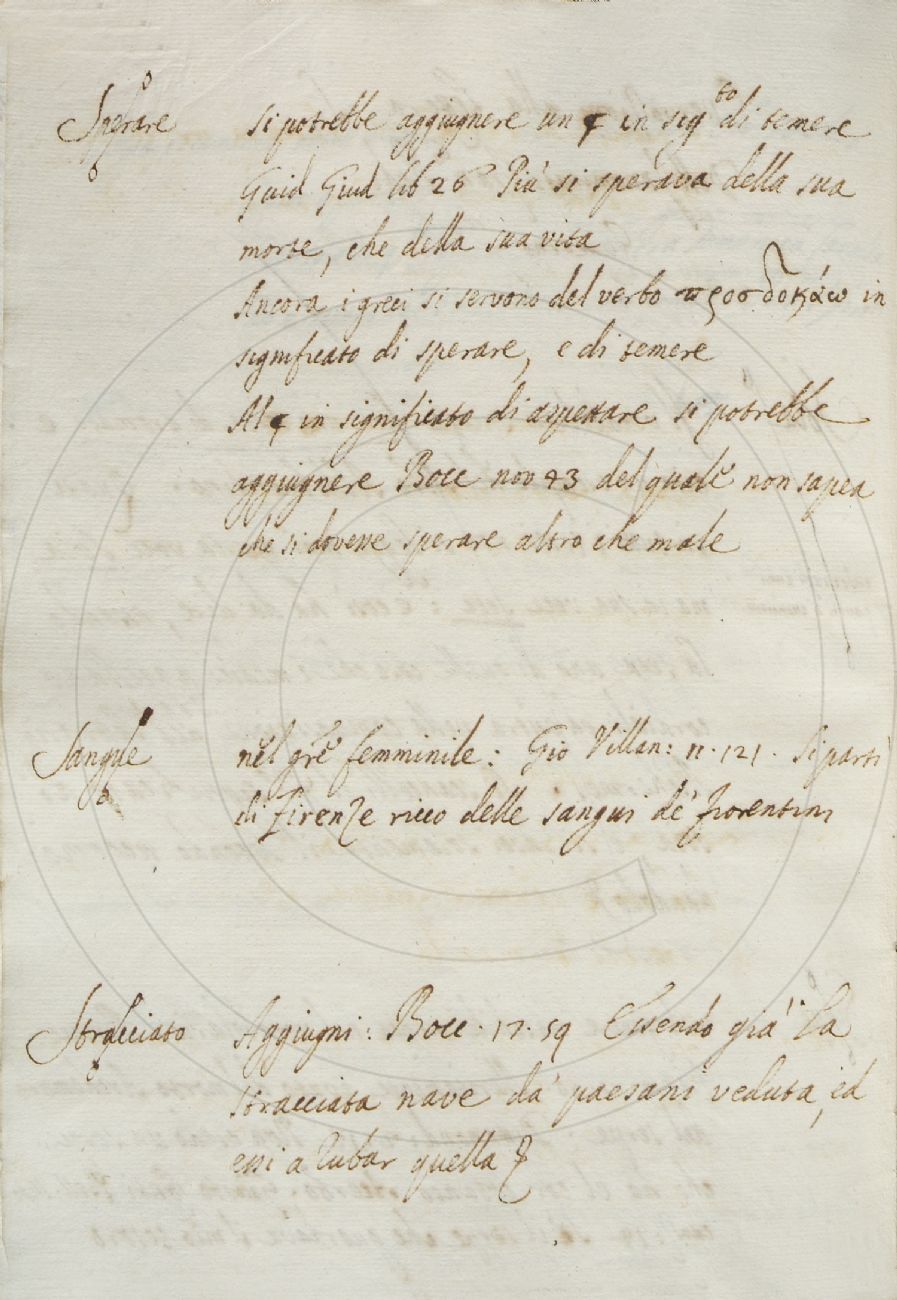 Sperare si potrebbe aggiugnere un § in sig.to di temere
Guid Giud lib 26 Più si sperava della sua
morte, che della sua vita
Ancora i greci si servono del verbo προσδοκάω in
significato di sperare, e di temere
Al § in significato di aspettare si potrebbe
aggiugnere Bocc nov 43 del quale non sapea
che si dovesse sperare altro che male
Sangue nel gñe femminile: Gio Villan: 11. 121. Si partì
di firenze ricco delle sangui de' fiorentini
Stracciato Aggiugni: Bocc. 17. 59 Essendo già la
stracciata nave da' paesani veduta, ed
essi a rubar quella